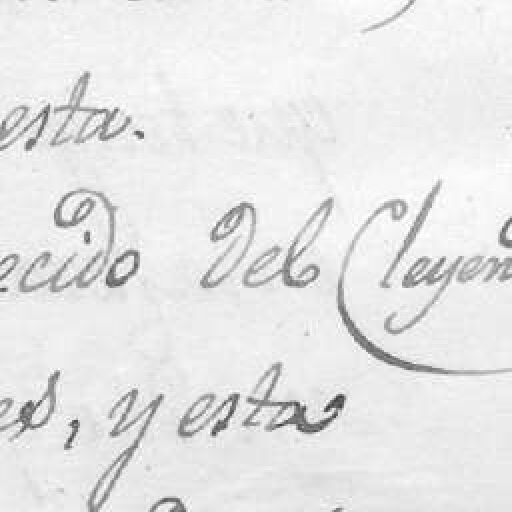 esta.
ecido del Cleyen
es, y esta